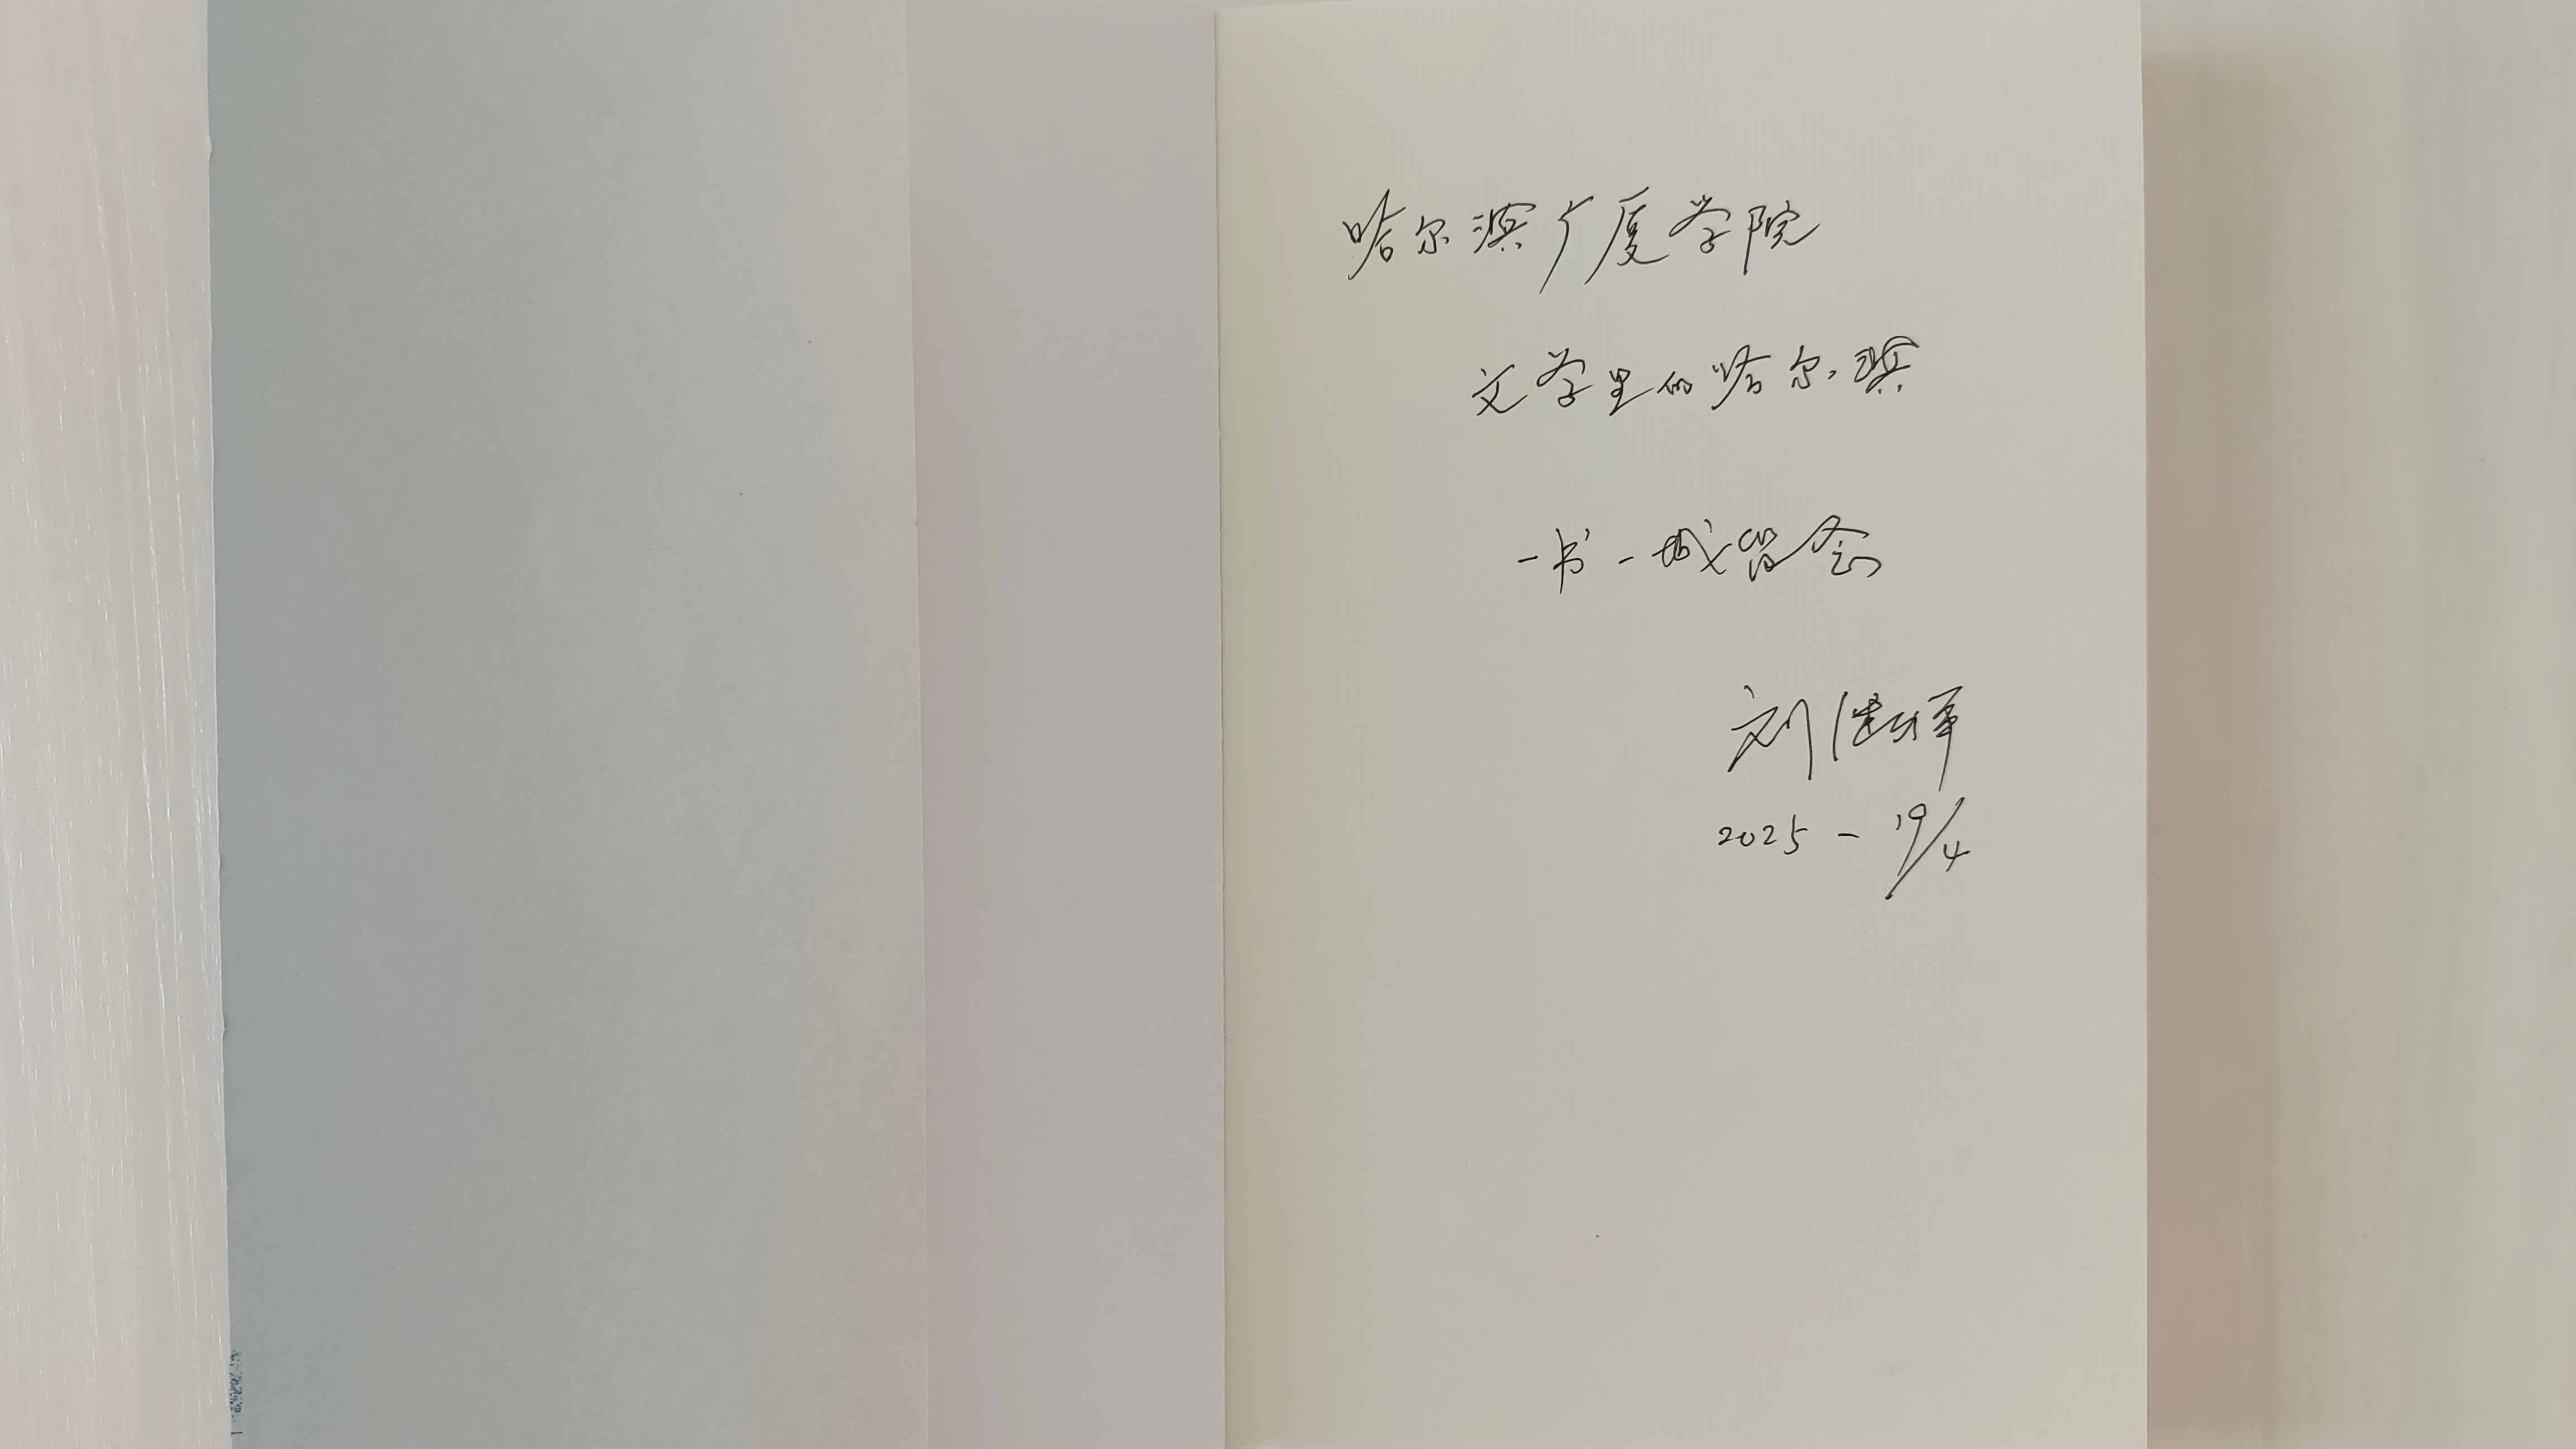 哈尔滨广厦学院
文学里的哈尔滨
一书一城留念
刘
2025-19/4